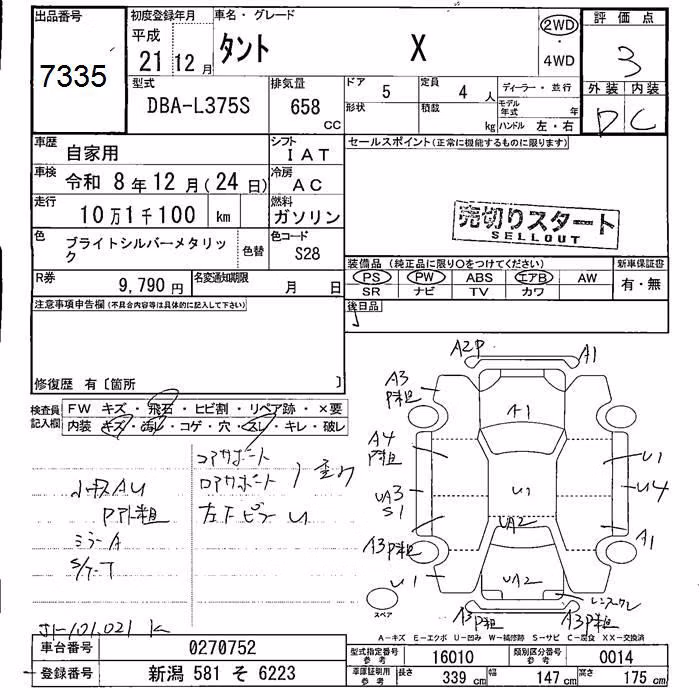 出品番号
7335
初度登録年月
平成
21 12 月
車名・グレード
タント X
2WD
・
4WD
評価点
3
外装 内装
D C
型式
DBA-L375S
排気量
658
CC
ドア 5
定員 4 人
形状
積数 kg
ディーラー・並行
モデル年式 年
ハンドル 左・右
車歴
自家用
シフト
IAT
車検 令和 8 年 12 月(24 日)
冷房
AC
走行
10万1千100 km
燃料
ガソリン
色
ブライトシルバーメタリック
色替
色コード
S28
R券
9,790 円
名変通知期限
月 日
セールスポイント(正常に機能するものに限ります)
売切りスタート
SELLOUT
装備品(純正品に限り○をつけてください)
PS PW ABS エアB AW
SR ナビ TV カワ
新車保証書
有・無
後日品
注意事項申告欄(不具合内容等は具体的に記入して下さい)
修復歴 有〔箇所 〕
検査員記入欄
FW キズ・飛石・ヒビ割・リペア跡・×要
内装 キズ・汚れ・コゲ・穴・スレ・キレ・破レ
コアサポート
ロアサポート
左下ピラー U
ミラーA
A2P
A1
A3
A1
A4
U1
U1
U4
UA3
S1
UA2
A3
A1
U1
UA2
スペア
A3
A3
A-キズ E-エクボ U-凹み W-補修跡 S-サビ C-腐食 XX-交換済
車台番号
0270752
登録番号
新潟 581 そ 6223
型式指定番号
参考
16010
類別区分番号
参考
0014
車庫証明用
参考
長さ 339 cm
幅 147 cm
高さ 175 cm